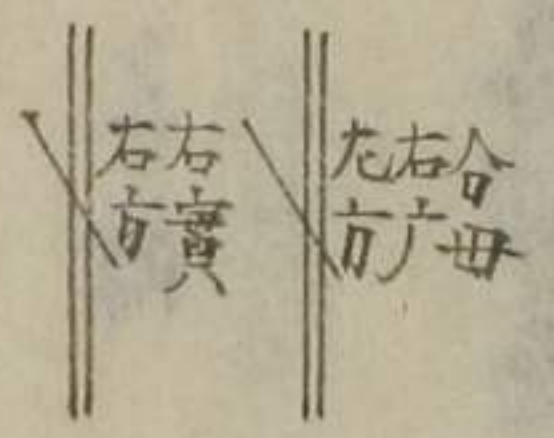 合毌
右广
左方
右實
右方